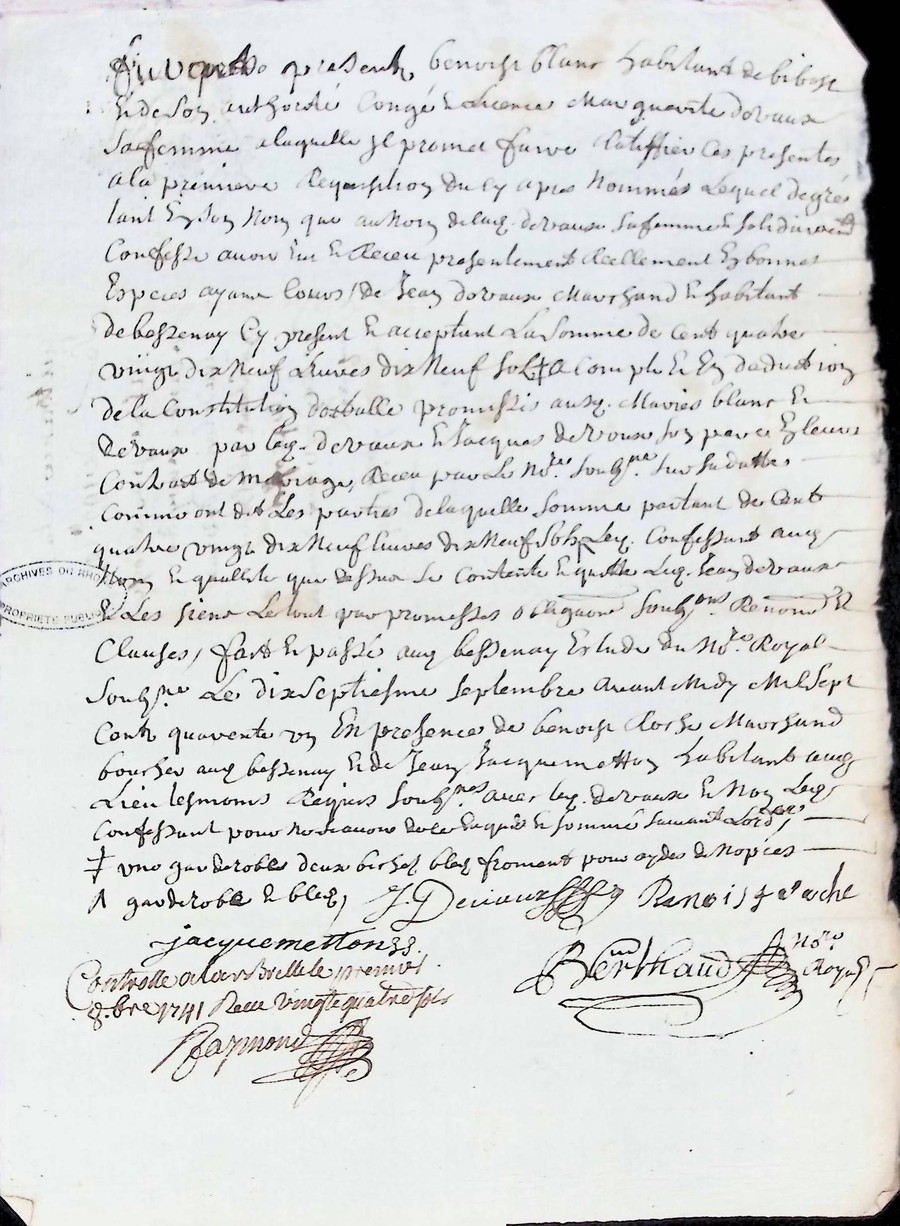 present benoist blanc habitant de bibost
Et de son authorité Congé Et Licence Marguerite devaux
sa femme a laquelle Jl promet faire Ratiffier Ces presentes
a la premiere Requisition du Cy apres Nommés Lequel de gré
tant En son Nom que au Nom de lad. devaux sa femme Et solidairemt
Confesse avoir Eu Et Receu presentement Reellement En bonnes
Especes ayant Cours / de Jean devaux Marchand Et habitant
de bessenay Cy present Et acceptant La somme de Cent quatre
vingt dix Neuf Livres dix Neuf sols ‡ a Compte Et En deduction
de la Constitution dotballe promis aux. Mariés blanc Et
devaux par led. devaux Et Jacques devaux son pere En leur
Contract de Mariage, Receu par Le No.re soubs.né sur sa datte
Comme ont dit Les parties de laquelle somme partant de Cent
quatre vingt dix Neuf Livres dix Neuf sols Led. Confessant aud.
Nom Et quallité que dessus se Contente Et quitte Led. Jean devaux
Et Les siens Le tout par promesses obligaons soubons Renonons Et
Clauses, fait Et passé aud bessenay Estude du No.re Royal
soubs.né Le dix septiesme septembre avant Midy Mil sept
Cents quarente un En presence de benoist Roche Marchand
boucher aud bessenay Et de Jean Jacquemetton habitant aud
Lieu tesmoins Requis soubs.nés avec led. devaux Et Non Led
Confessant pour ne scavoir de ce Enquis Et sommé suivant Lordce
‡ une garderobe deux bichez bled froment pour aydes de Nopces
garderobe Et bled, J. Devaux Benoist Roche
jacquemetton
Berthaud No.re Royal
Controllé a larbrelle le premier
8.bre 1741 Receu vingt quatre sols
Raymond
ARCHIVES DU RHONE
PROPRIETE PUBLIQUE